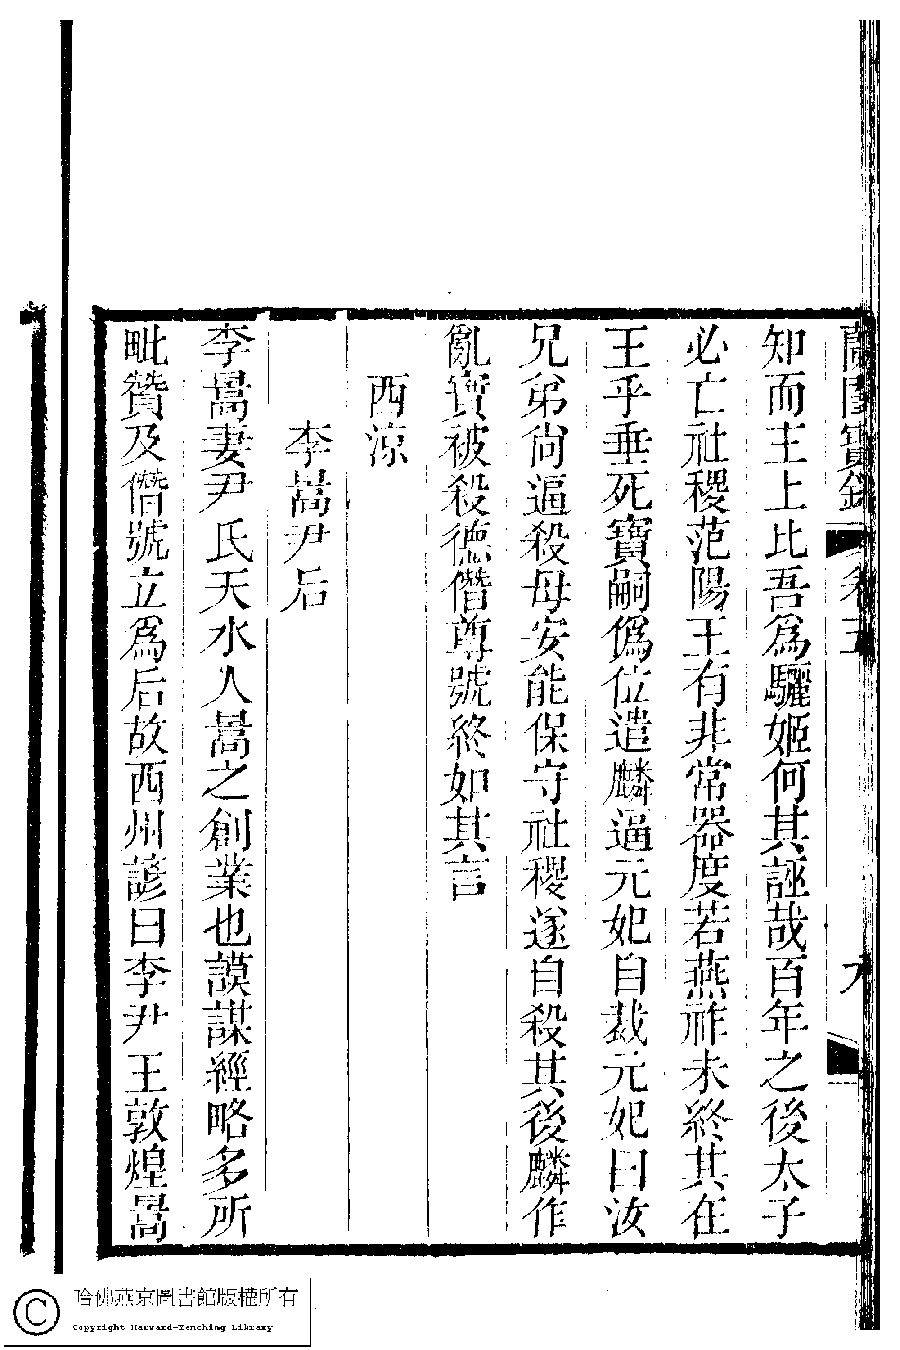 蘭閨寶錄 卷五 九
知而主上比吾爲驪姬何其誣哉百年之後太子
必亡社稷范陽王有非常器度若燕祚未終其在
王乎垂死寶嗣僞位遣麟逼元妃自裁元妃曰汝
兄弟尙逼殺母安能保守社稷遂自殺其後麟作
亂寶被殺德僭尊號終如其言
西涼
李暠尹后
李暠妻尹氏天水人暠之創業也謨謀經略多所
毗贊及僭號立爲后故西州諺曰李尹王敦煌暠
哈佛燕京圖書館版權所有
Copyright Harvard-Yenching Library